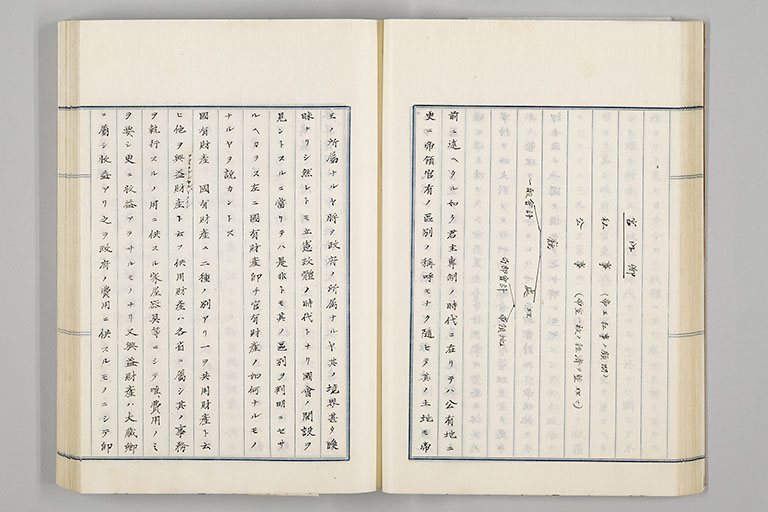 宮内卿
私事(帝王私事ノ顧問)
公事(帝室一般ノ経済ヲ整理ス)
一般会計
帝領地
前ニ述ヘタル如ク君主専制ノ時代ニ在リテハ公有地ニ
更ニ帝領官有ノ区別ノ称呼モナク随ヒテ其ノ土地モ帝
王ノ所属ナルヤ将タ政府ノ所属ナルヤ其ノ境界甚タ曖
昧ナリシ然レトモ立憲政體ノ時代トナリ國會ノ開設ヲ
見ントスルニ當リテハ是非トモ其ノ区別ヲ判明ニセサ
ルヘカラス左ニ國有財産即チ官有財産ノ如何ナルモノ
ナルヤヲ説カントス
國有財産 國有財産ニ二種ノ別アリ一ヲ共用財産ト云
ヒ他ヲ興益財産ト云フ供用財産ハ各省ニ屬シ其ノ事務
ヲ執行スルノ用ニ供スル家屋器具等ニシテ唯費用ノミ
ヲ要シ更ニ収益アラサルモノナリ又興益財産ハ大蔵卿
ニ屬シ収益アリ之ヲ政府ノ費用ニ供スルモノニシテ即